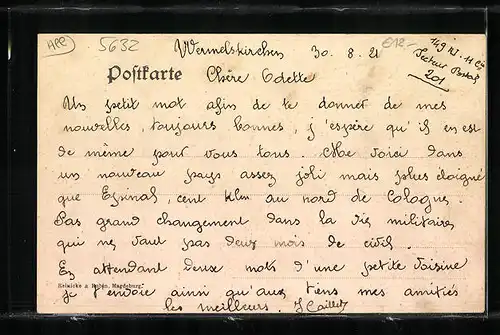 APC 5632 Wermelskirchen 30.8.21 €12-
149 RI - 11 Cie
Secteur Postal
201
Postkarte Chère Odette
Un petit mot afin de te donner de mes
nouvelles, toujours bonnes, j'espère qu'il en est
de même pour vous tous. Me voici dans
un nouveau pays assez joli mais plus éloigné
que Epinal, cent klm au nord de Cologne.
Pas grand changement dans la vie militaires
qui ne vaut pas deux mois de civil.
En attendant deux mots d'une petite voisine
Reinicke & Rubin, Magdeburg.
je t'envoie ainsi qu'aux tiens mes amitiés
les meilleurs.